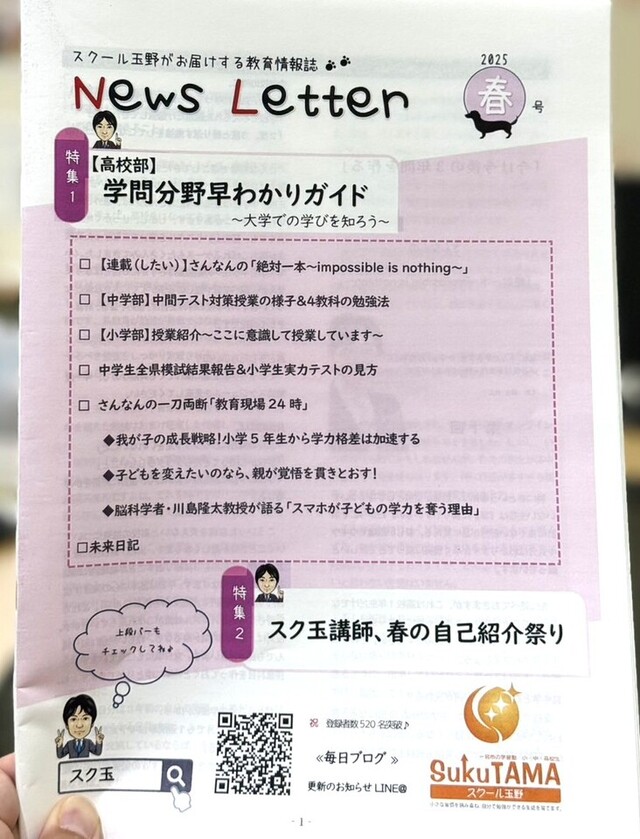 スクール玉野がお届けする教育情報誌
News Letter
2025
春
号
特集1
【高校部】
学問分野早わかりガイド
～大学での学びを知ろう～
□ 【連載(したい)】さんなんの「絶対一本～impossible is nothing～」
□ 【中学部】中間テスト対策授業の様子&4教科の勉強法
□ 【小学部】授業紹介～ここに意識して授業しています～
□ 中学生全県模試結果報告&小学生実力テストの見方
□ さんなんの一刀両断「教育現場24時」
◆我が子の成長戦略!小学5年生から学力格差は加速する
◆子どもを変えたいのなら、親が覚悟を貫きとおす!
◆脳科学者・川島隆太教授が語る「スマホが子どもの学力を奪う理由」
□未来日記
特集2
スク玉講師、春の自己紹介祭り
上段バーも
チェックしてね♪
スク玉
祝 登録者数520名突破♪
≪毎日ブログ≫
更新のお知らせLINE@
SukuTAMA
スクール玉野
- 1 -